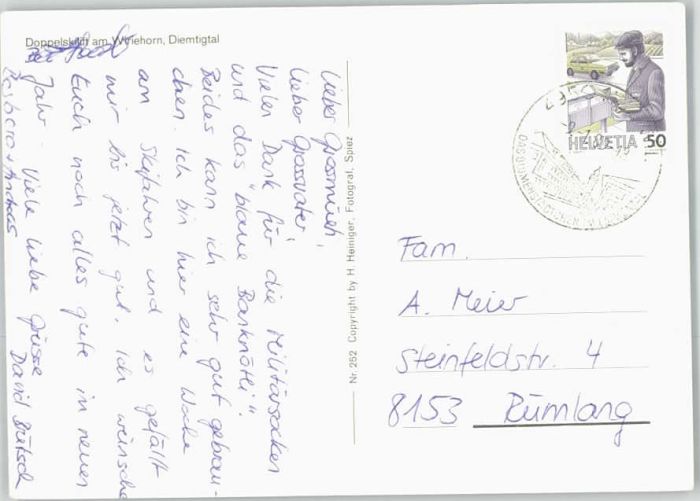 Doppelskilift am Wiriehorn, Diemtigtal
Liebes Grossmüeti,
Lieber Grossvater,
Vielen Dank für die Militärsocken
und das "blaue Banknötli"
Beides kann ich sehr gut gebrau-
chen. Ich bin hier eine Woche
am Skifahren und es gefällt
mir bis jetzt gut. Ich wünsche
Euch noch alles gute im neuen
Jahr. Viele liebe Grüsse
David Bütsch
Barbara + Andreas
Nr. 252 Copyright by H. Heiniger, Fotograf, Spiez
HELVETIA 50
Fam.
A. Meier
Steinfeldstr. 4
8153 Rümlang